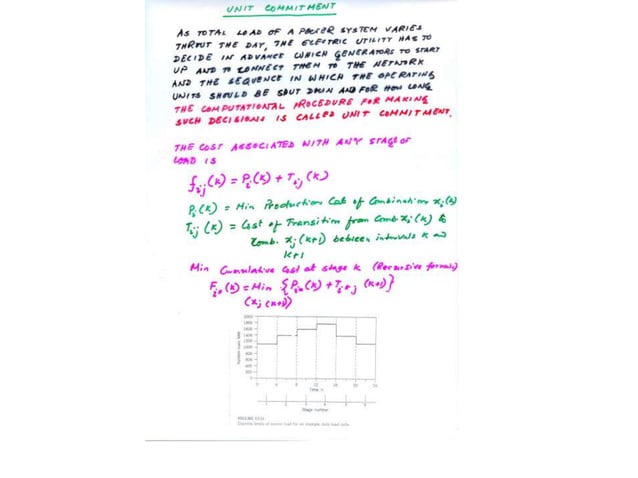 UNIT COMMITMENT
AS TOTAL LOAD OF A POWER SYSTEM VARIES
THROUT THE DAY, THE ELECTRIC UTILITY HAS TO
DECIDE IN ADVANCE WHICH GENERATORS TO START
UP AND TO CONNECT THEM TO THE NETWORK
AND THE SEQUENCE IN WHICH THE OPERATING
UNITS SHOULD BE SHUT DOWN AND FOR HOW LONG
THE COMPUTATIONAL PROCEDURE FOR MAKING
SUCH DECISIONS IS CALLED UNIT COMMITMENT.
THE COST ASSOCIATED WITH ANY STAGE OF
LOAD IS
f_ij(k) = P_i(k) + T_ij(k)
P_i(k) = Min Production Cost of Combination x_i(k)
T_ij(k) = Cost of Transition from Comb x_i(k) to
Comb. x_j(k+1) between intervals k and
k+1
Min Cumulative Cost at stage k (Recursive formula)
F_i*(k) = Min {P_i*(k) + T_i*j (k+1)}
(x_j(k+1))
Time, h
Stage number